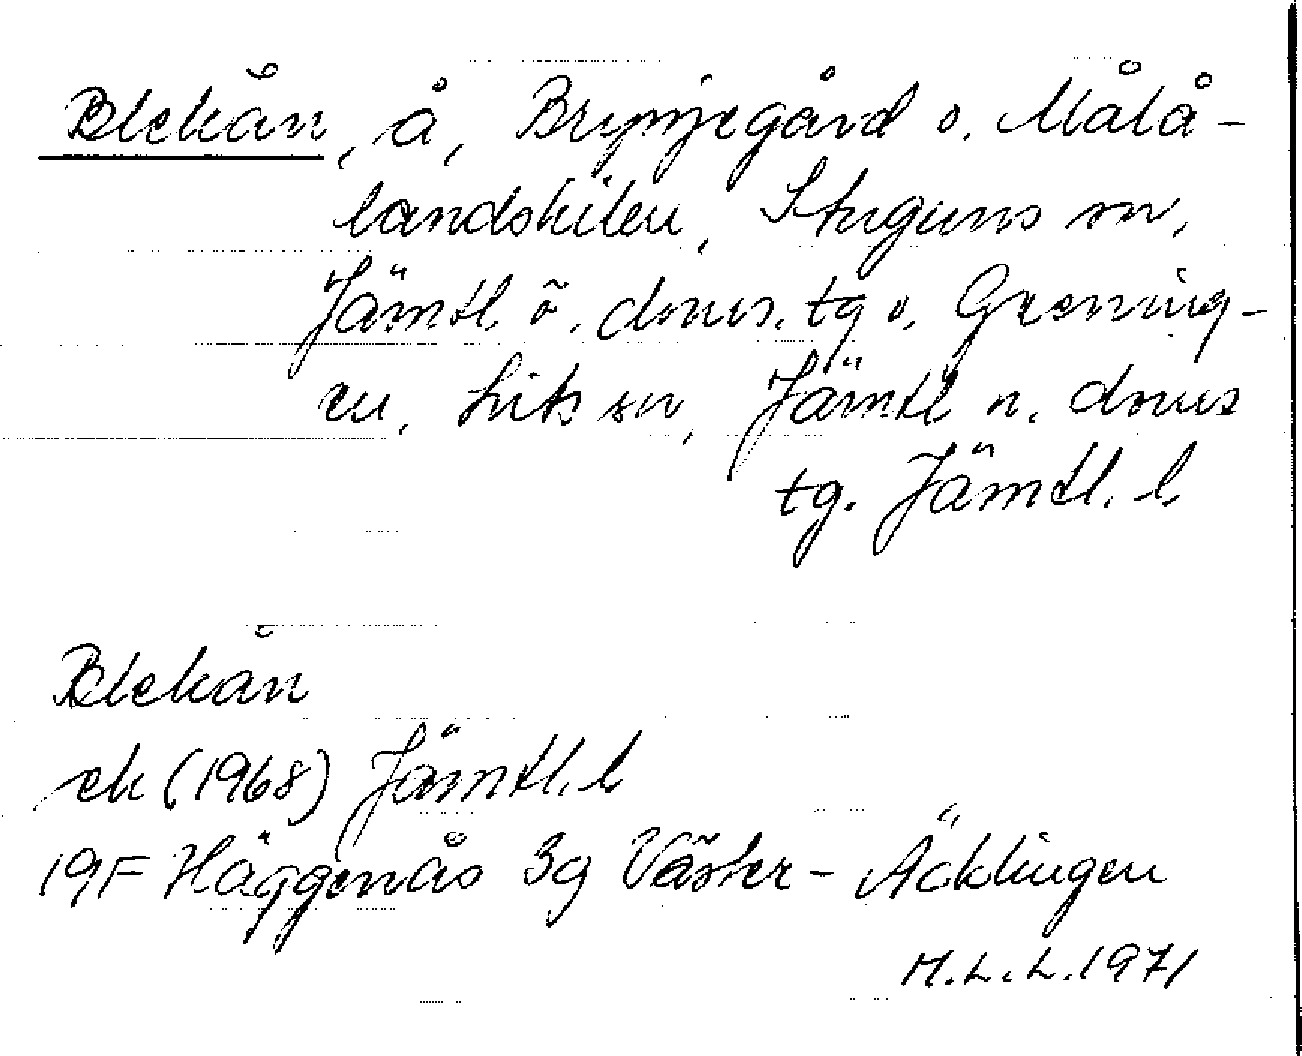 Blekån, å, Brynjegård o. Målå-
landskilen, Stuguns sn,
Jämtl. ö. doms. tg o. Grening-
en, Lits sn, Jämtl n. doms
tg. Jämtl. l.
Blekån
ek (1968) Jämtl. l
19F Häggenås 3g Väster-Äcklingen
M.L.L. 1971